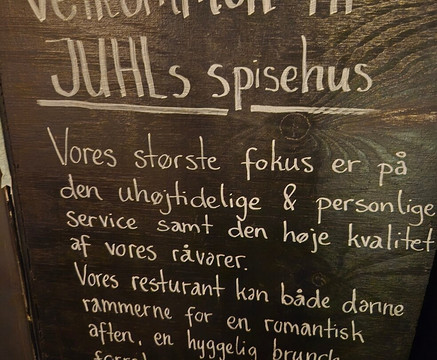 Velkommen til
JUHLs spisehus
Vores største fokus er på
den uhøjtidelige & personlige
service samt den høje kvalitet
af vores råvarer.
Vores resturant kan både danne
rammerne for en romantisk
aften, en hyggelig brunch